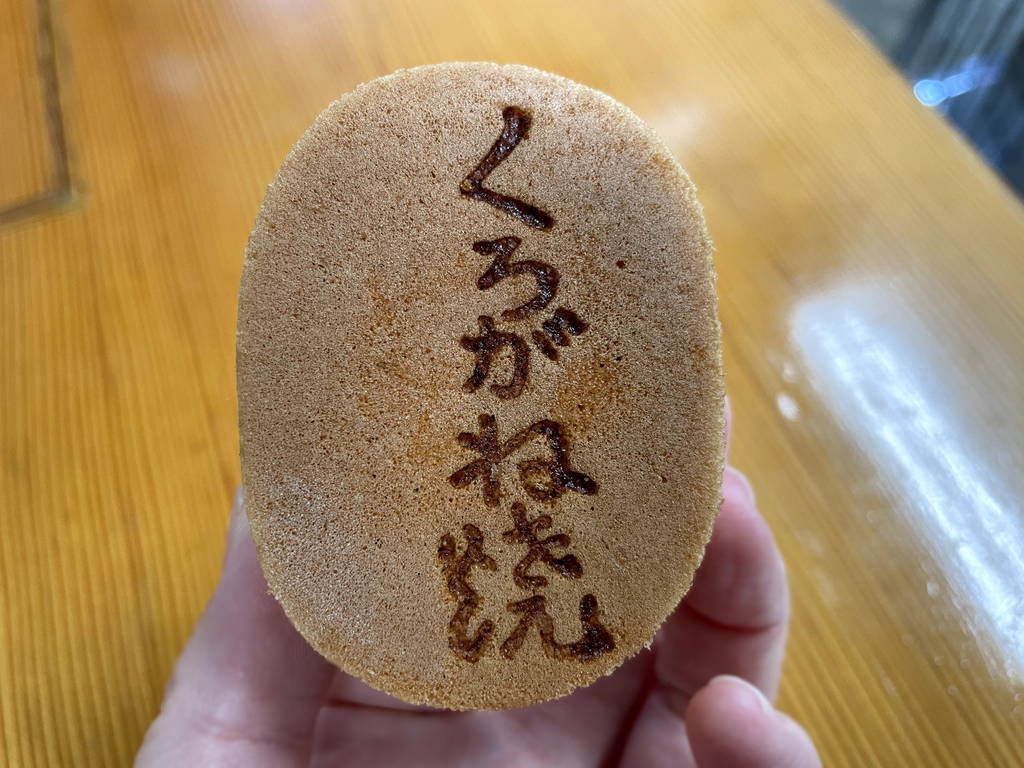 くろがね焼